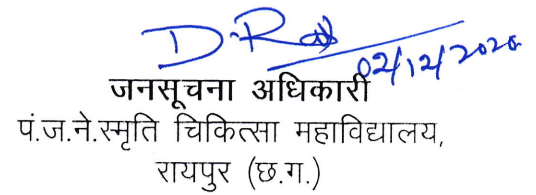 02/12/2020
जनसूचना अधिकारी
पं.ज.ने.स्मृति चिकित्सा महाविद्यालय,
रायपुर (छ.ग.)